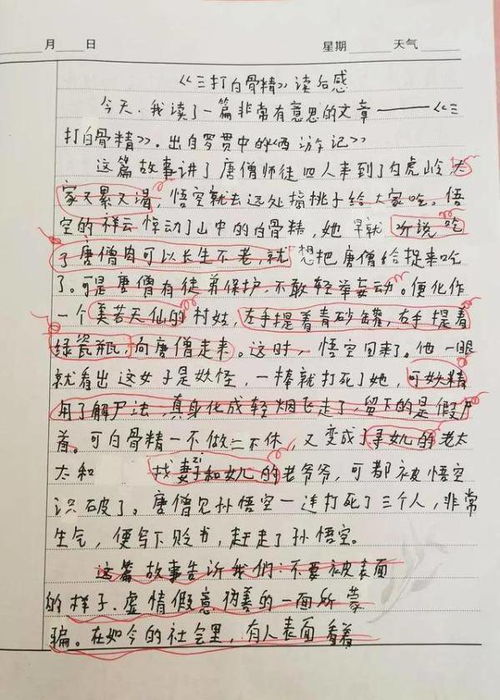 月 日 星期 天气
《三打白骨精》读后感
今天,我读了一篇非常有意思的文章——《三
打白骨精》,出自罗贯中的《西游记》
这篇故事讲了唐僧师徒四人来到了白虎岭,大
家又累又渴,悟空就去远处摘桃子给大家吃。悟
空的祥云惊动了山中的白骨精,她早就听说吃
了唐僧肉可以长生不老,就想把唐僧给捉来吃
了。可是唐僧有徒弟保护,不敢轻举妄动。便化作
一个美若天仙的村姑,左手提着青砂罐,右手提着
绿瓷瓶,向唐僧走来。这时,悟空回来了。他一眼
就看出这女子是妖怪,一棒就打死了她,可妖精
用了解尸法,真身化成轻烟飞走了,留下的是假尸
首。可白骨精一不做二不休,又变成了寻女儿的老太
太和 找妻子和女儿的老爷爷,可都被悟空
识破了。唐僧见孙悟空一连打死了三个人,非常
生气,便写下贬书,赶走了孙悟空。
这篇故事告诉我们:不要被表面
的样子,虚情假意,伪善的一面所蒙
骗。在如今的社会里,有人表面看着